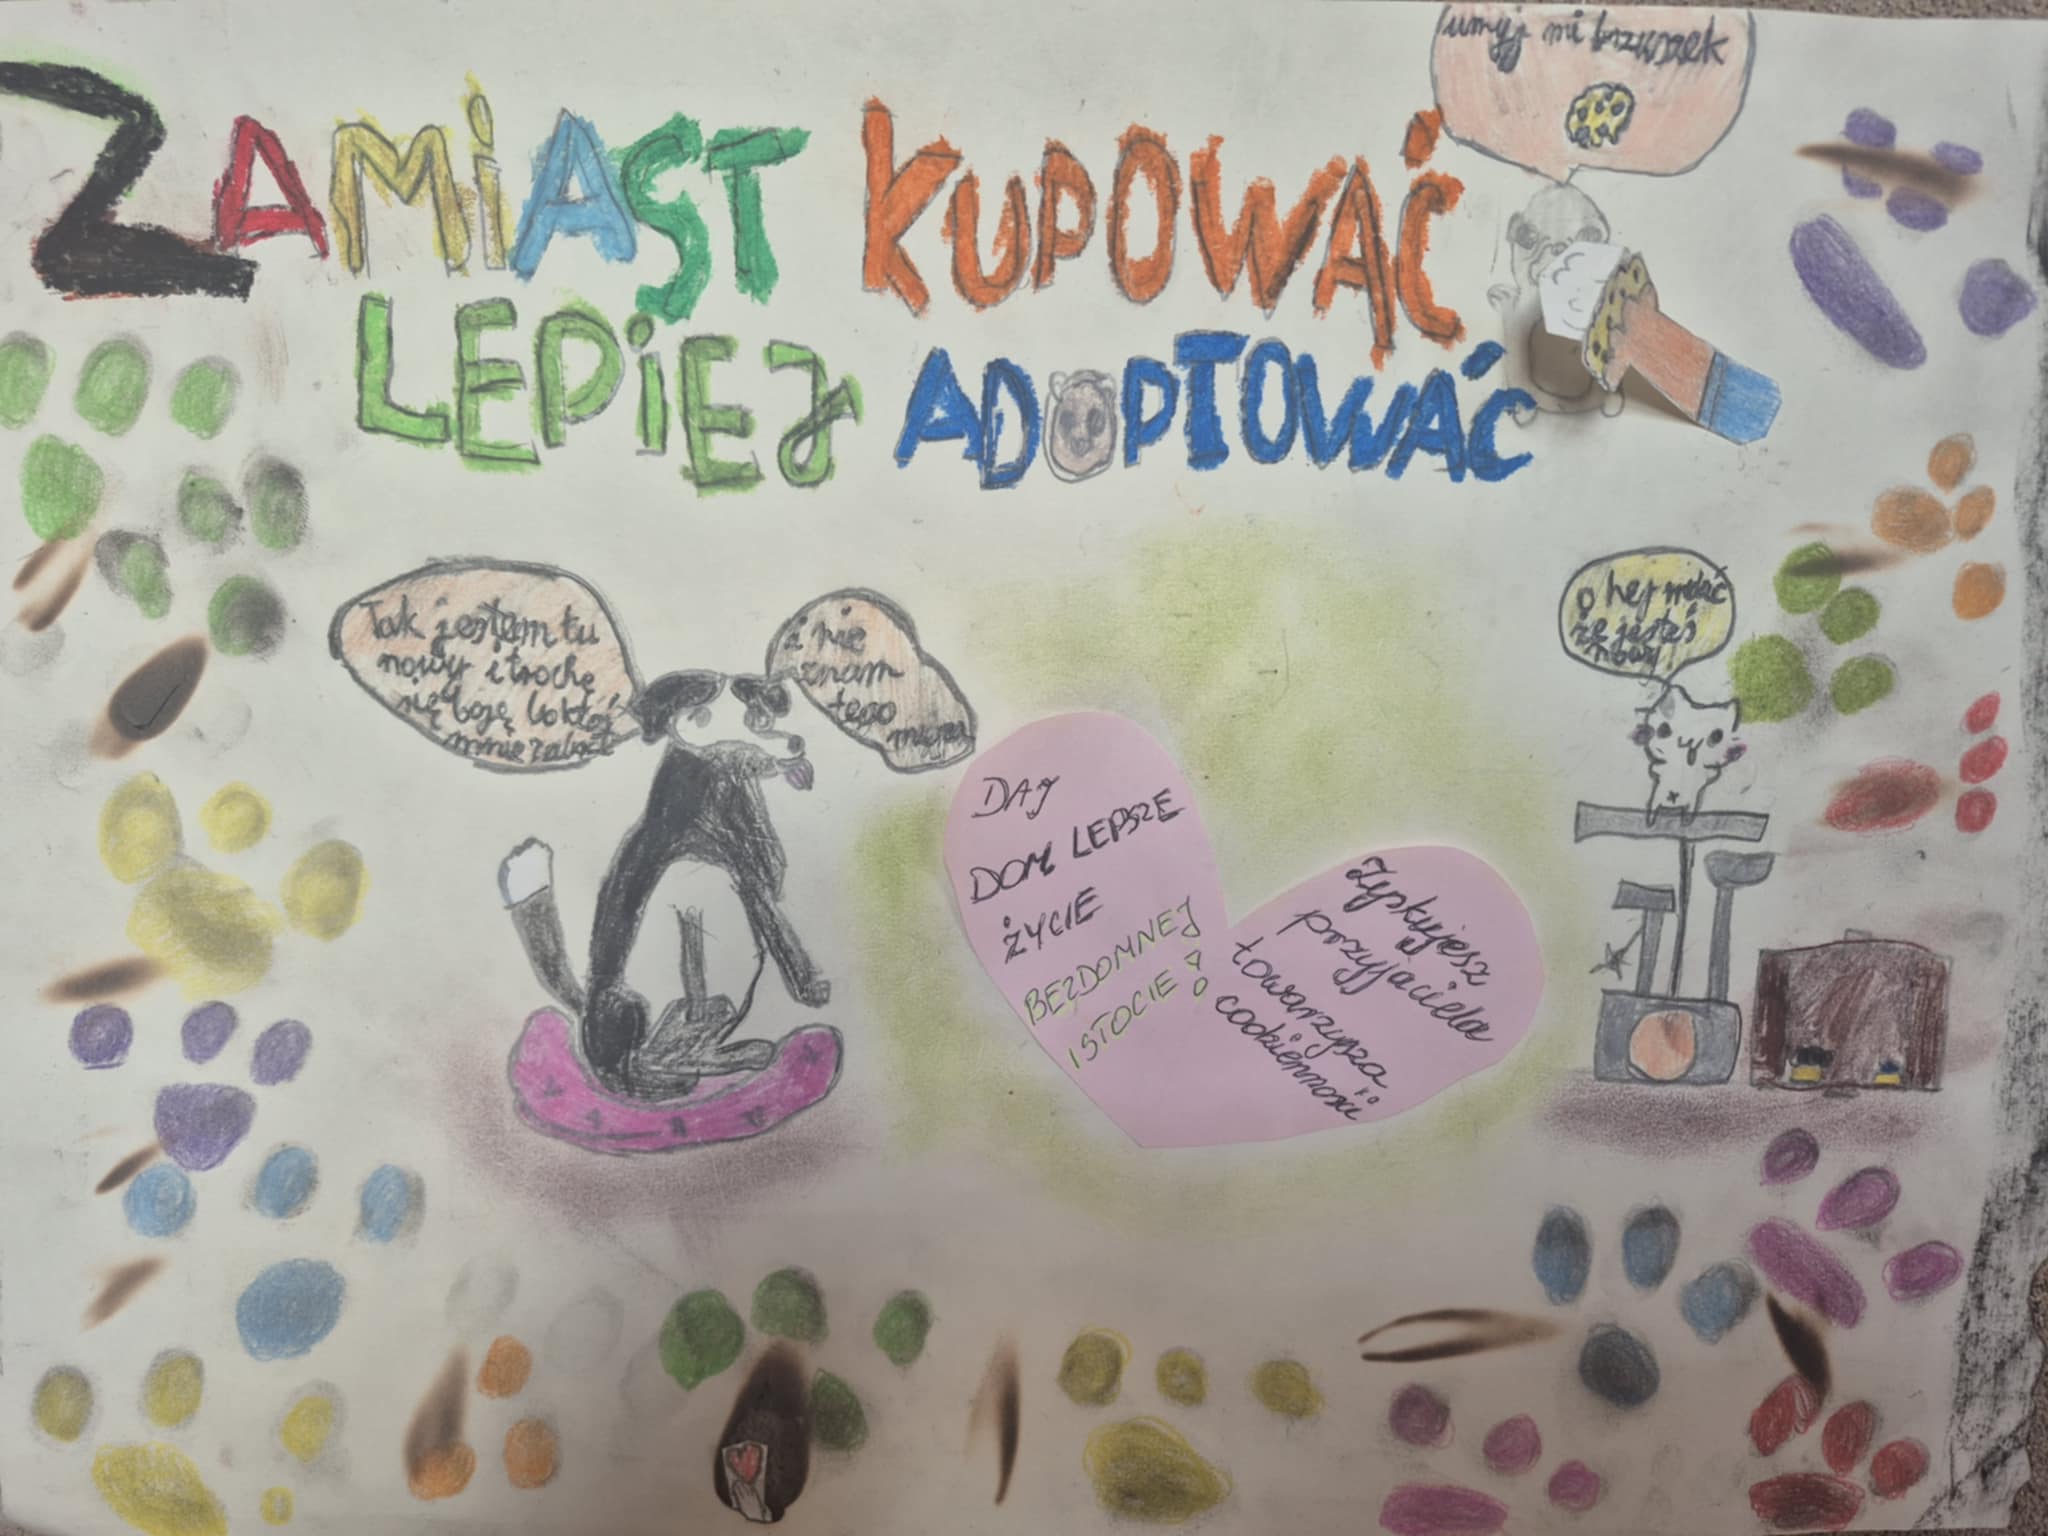 umyj mi brzuszek
ZAMiAST KUPOWAĆ
LEPiEJ ADOPTOWAĆ
Tak jestem tu
nowy i trochę
się boję bo ktoś
mnie
i nie
znam
tego
miejsca
o hej widać
że jesteś
nowy
DAJ
DOM LEPSZE
ŻYCIE
BEZDOMNEJ
ISTOCIE!
Zyskujesz
przyjaciela
towarzysza
codzienności